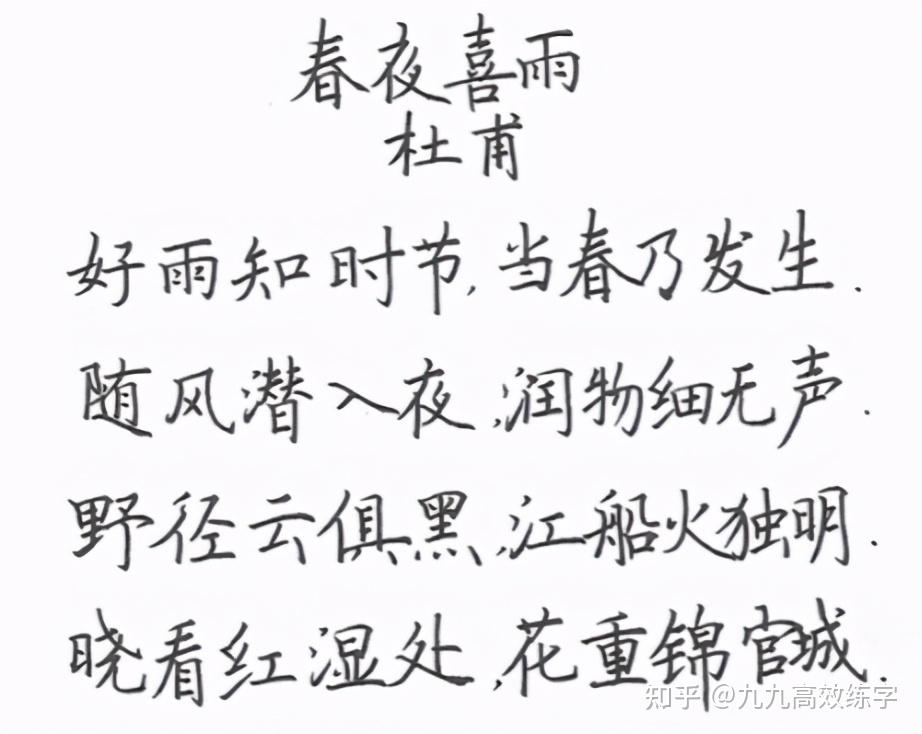 春夜喜雨
杜甫
好雨知时节,当春乃发生.
随风潜入夜,润物细无声.
野径云俱黑,江船火独明.
晓看红湿处,花重锦官城.
知乎 @九九高效练字